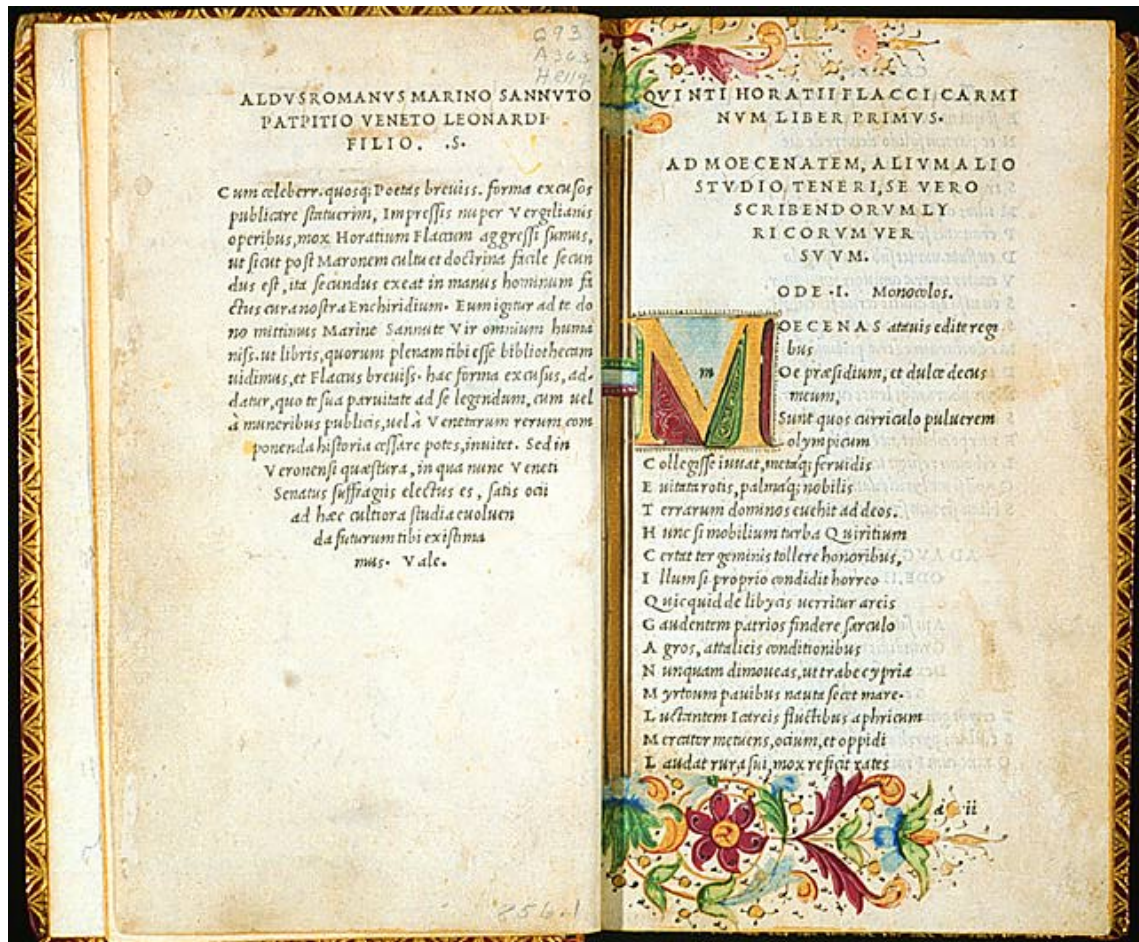 693
A363
H8119
ALDVS ROMANVS MARINO SANNVTO
PATPITIO VENETO LEONARDI
FILIO. .S.
Cum celeberr. quosq; Poetas breuiss. forma excusos
publicare statuerim, Impressis nuper Vergilianis
operibus, mox Horatium Flaccum aggressi sumus,
ut sicut post Maronem cultu et doctrina facile secun
dus est, ita secundus exeat in manus hominum fa
ctus cura nostra Enchiridium. Eum igitur ad te do
no mittimus Marine Sannute Vir omnium huma
niss. ut libris, quorum plenam tibi esse bibliothecam
uidimus, et Flaccus breuiss. hac forma excusus, ad-
datur, quo te sua paruitate ad se legendum, cum uel
à muneribus publicis, uel à Venetarum rerum com
ponenda historia cessare potes, inuitet. Sed in
Veronensi quæstura, in qua nunc Veneti
Senatus suffragiis electus es, satis ocii
ad hæc cultiora studia euoluen
da futurum tibi existima
mus. Vale.
856.1
QVINTI HORATII FLACCI CARMI
NVM LIBER PRIMVS.
AD MOECENATEM, ALIVM ALIO
STVDIO TENERI, SE VERO
SCRIBENDORVM LY
RICORVM VER
SVVM.
ODE .I. Monocolos.
MOECENAS atauis edite regi
bus
Oe præsidium, et dulce decus
meum,
Sunt quos curriculo puluerem
olympicum
Collegisse iuuat, metaq; feruidis
Euitata rotis, palmaq; nobilis
Terrarum dominos euehit ad deos.
Hunc si mobilium turba Quiritium
Certat ter geminis tollere honoribus,
Illum si proprio condidit horreo
Quicquid de libycis uerritur areis
Gaudentem patrios findere sarculo
Agros, attalicis conditionibus
Nunquam dimoueas, ut trabe cypria
Myrtoum pauibus nauta secet mare.
Luctantem Icareis fluctibus aphricum
Mercator metuens, ocium, et oppidi
Laudat rura sui, mox reficit rates
a ii